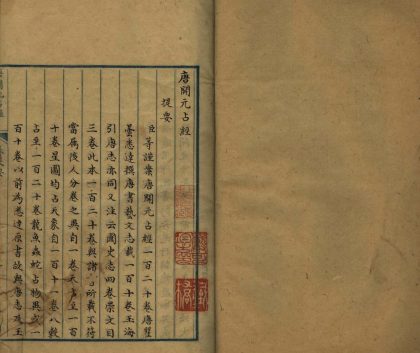 唐開元占經
提要
臣等謹案唐開元占經一百二十卷唐瞿
曇悉達撰唐書藝文志載一百十卷玉海
引唐志亦同又注云國史志四卷崇文目
三卷此本一百二十卷與諸所載不符
當屬後人分卷之異自一卷天占至一百
十卷星圖均占天象自一百十一卷八穀
占至一百二十卷龍魚蟲蛇占物異或一
百十卷以前為悉達原書故與唐志及玉